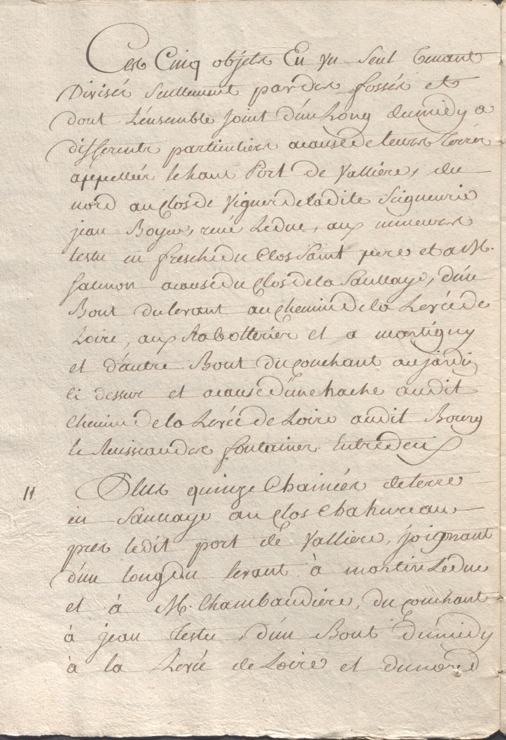 Ces Cinq objets En un seul tenant
Divisés seullement par des fossés et
dont L'ensemble joint d'un Long du midy a
differents particuliers acause de leurs terres
appellées le haut Port de Vallière, du
nord au clos de Vigne de la dite Seigneurie
jean Boyer, rené Leduc, aux mineurs
testu en fresche du Clos Saint père et a M.
Saumon acause du Clos de la Saullaye, d'un
Bout du levant au chemin de la Levée de
Loire, aux Rabotteries et a martigny
et d'autre Bout du couchant au jardin
ci dessus et acause d'une hache audit
chemin de la Levée de Loire audit Bourg
le Ruisseau des fontaines Entredeux
11 Plus quinze Chainées de terre
en Saullaye au clos Chahureau
près le dit port de Vallière, joignant
d'un long du levant à martin Leduc
et à M. Chambaudière, du couchant
à jean testu, d'un Bout du midy
à la Levée de Loire et du nord